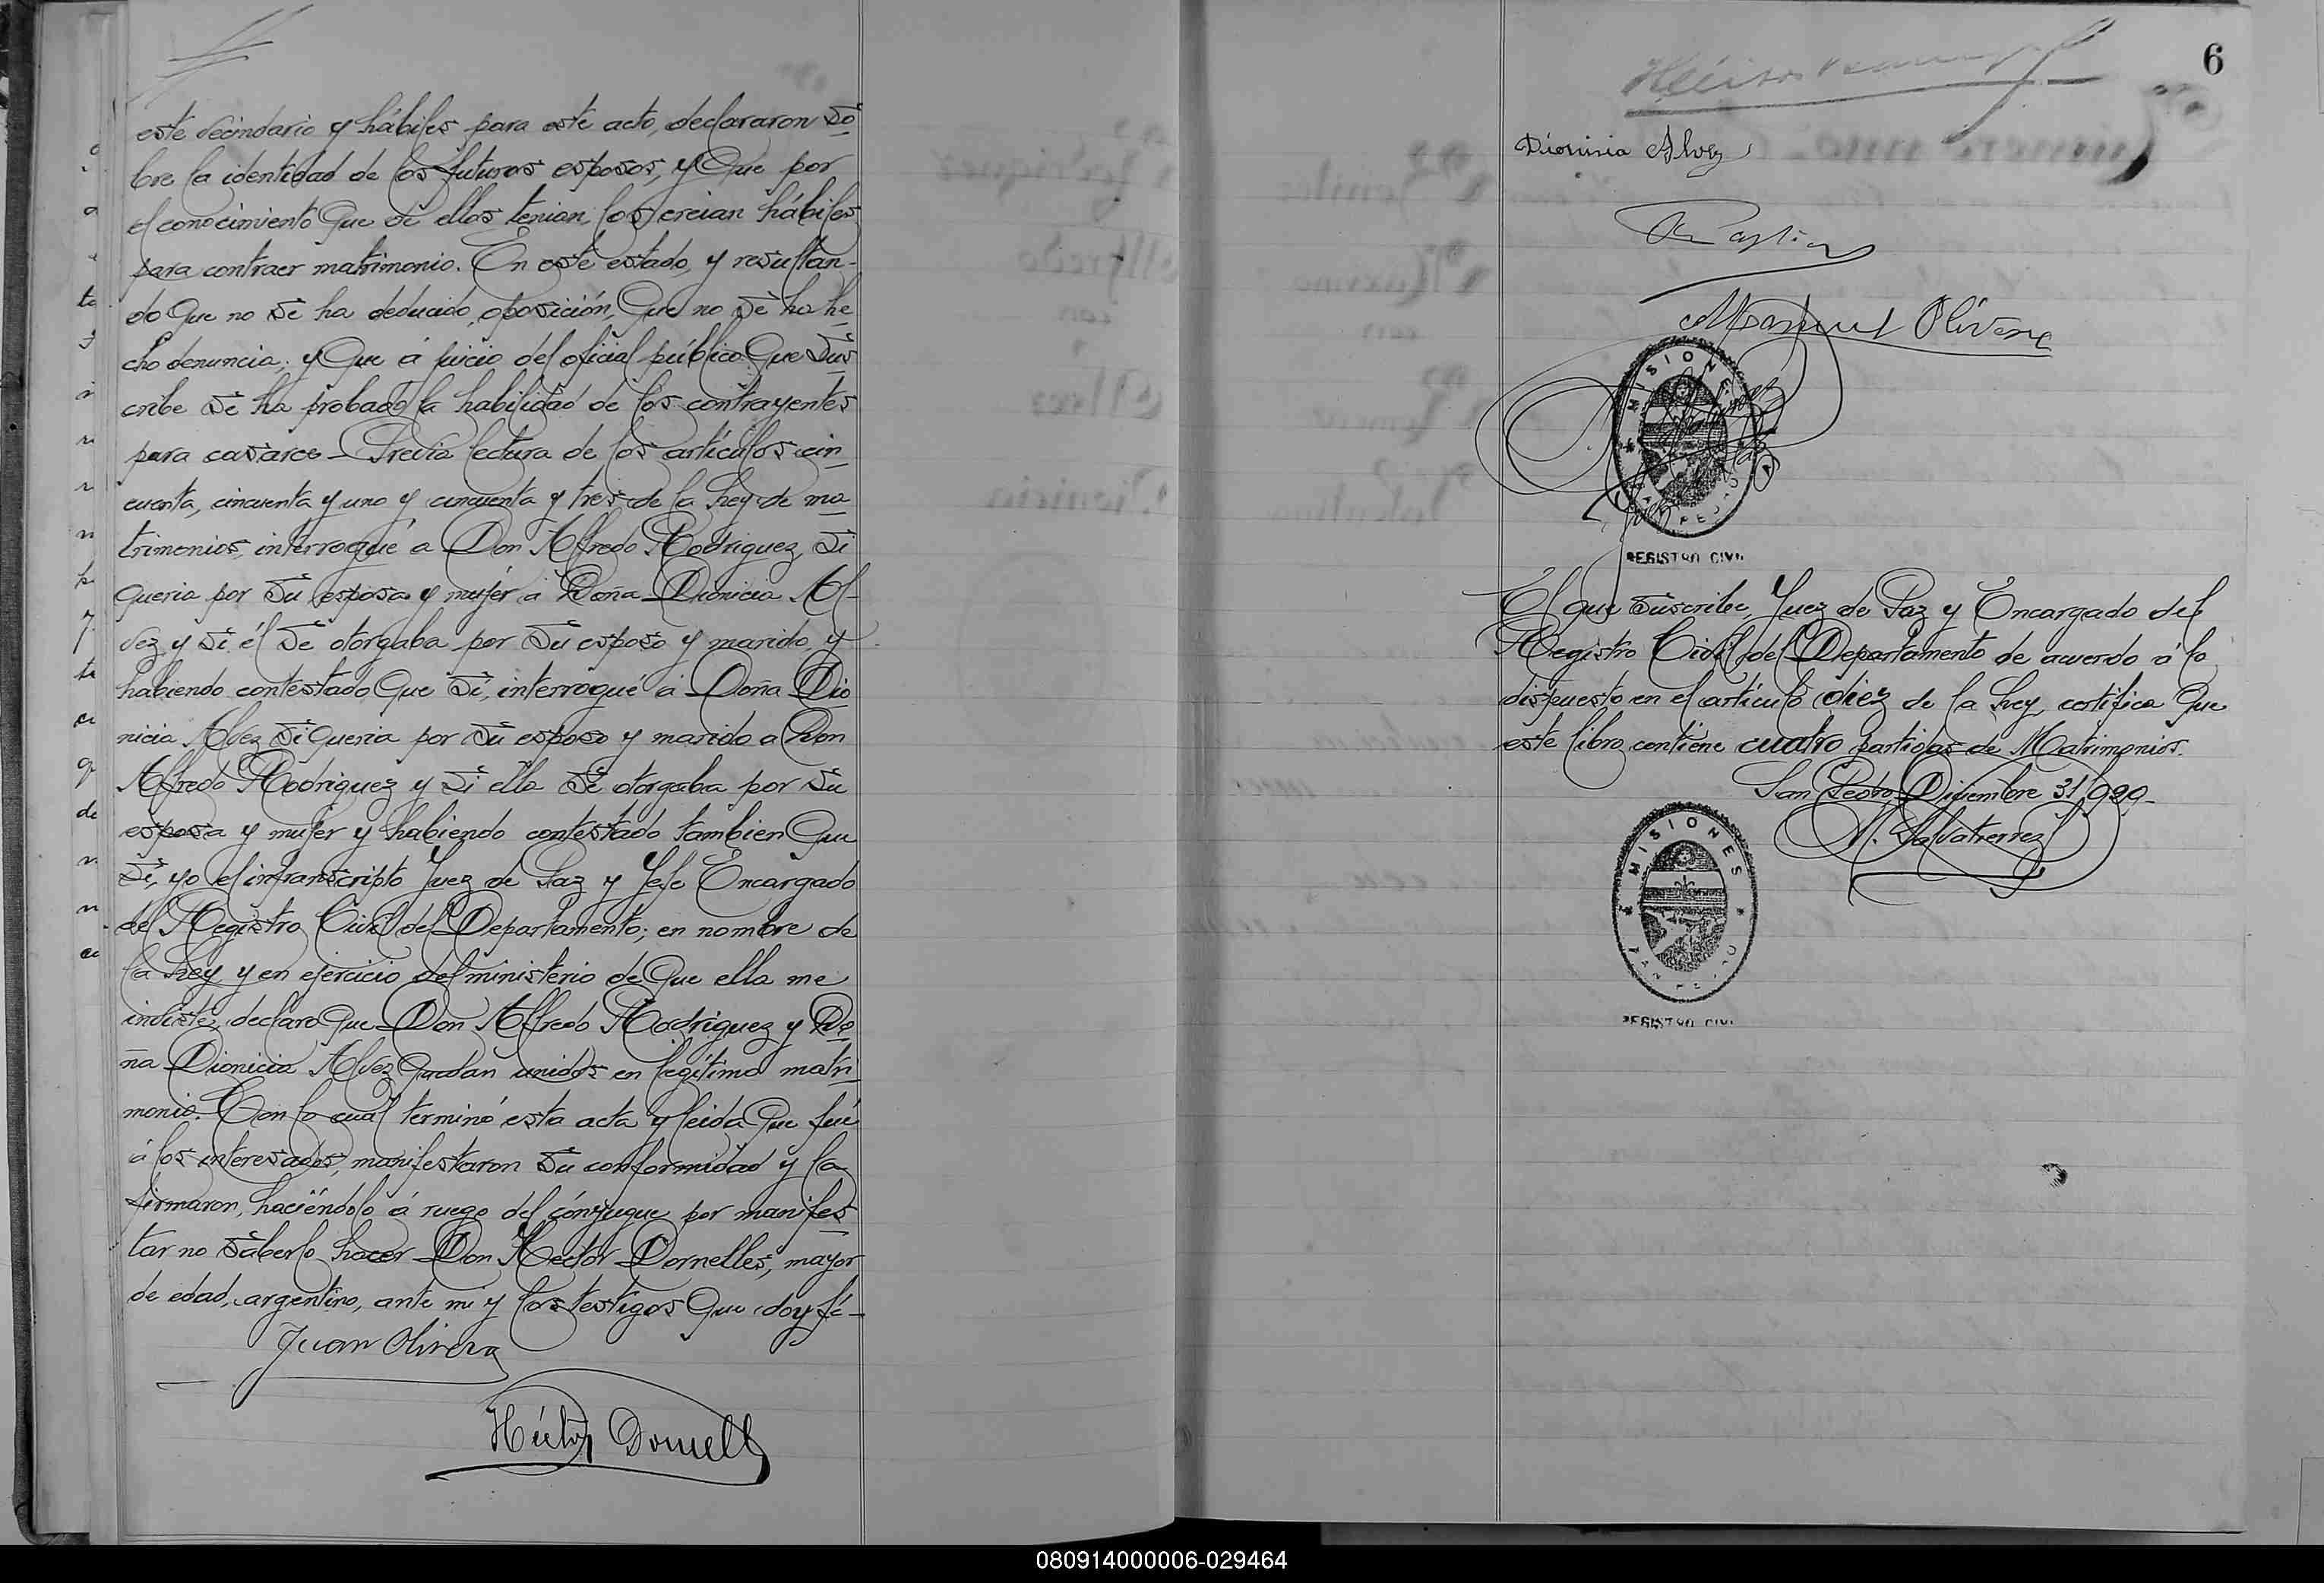 este vecindario y hábiles para este acto, declararon so
bre la identidad de los futuros esposos, y Que por
el conocimiento Que de ellos tenian, los creian hábiles
para contraer matrimonio. En este estado, y resultan-
do Que no se ha deducido oposición, Que no se ha he
cho denuncia; y Que á juicio del oficial público Que sus
cribe se ha probado la habilidad de los contrayentes
para casarce - Previa lectura de los artículos cin
cuenta, cincuenta y uno y cincuenta y tres de la Ley de ma
trimonios, interrogué a Don Alfredo Rodriguez, si
Queria por su esposa y mujér a Doña Dionicia Al-
vez y si él se otorgaba por su esposo y marido, y
habiendo contestado Que si, interrogué á Doña Dio
nicia Alvez si Queria por su esposo y marido a Don
Alfredo Rodriguez y si ella se otorgaba por su
esposa y mujer y habiendo contestado tambien Que
si, yo el infranscripto Juez de Paz y Jefe Encargado
del Registro Civil del Departamento; en nombre de
la Ley y en ejercicio del ministerio de Que ella me
indiste, declaro Que Don Alfredo Rodriguez y Do
ña Dionicia Alvez Quedan unidos en legítimo matri
monio. Con lo cual terminó esta acta y leida Que fué
á los interesados, manifestaron su conformidad y la
firmaron, haciéndolo á ruego del cónyugue por manifes
tar no saberlo hacer Don Hector Dornelles, mayor
de edad, argentino, ante mi y los testigos Que doy fé-
Juan Olivera
Héctor Dornell
6
Dionisia Alvez
Manuel Olivera
MISIONES
REGISTRO CIVIL
El que suscribe, Juez de Paz y Encargado del
Registro Civil del Departamento de acuerdo á lo
dispuesto en el artículo diez de la Ley, certifica Que
este libro contiene cuatro partidas de Matrimonios.
San Pedro Diciembre 31/929-
M. Salvatierrez
MISIONES
SAN PEDRO
REGISTRO CIVIL
080914000006-029464